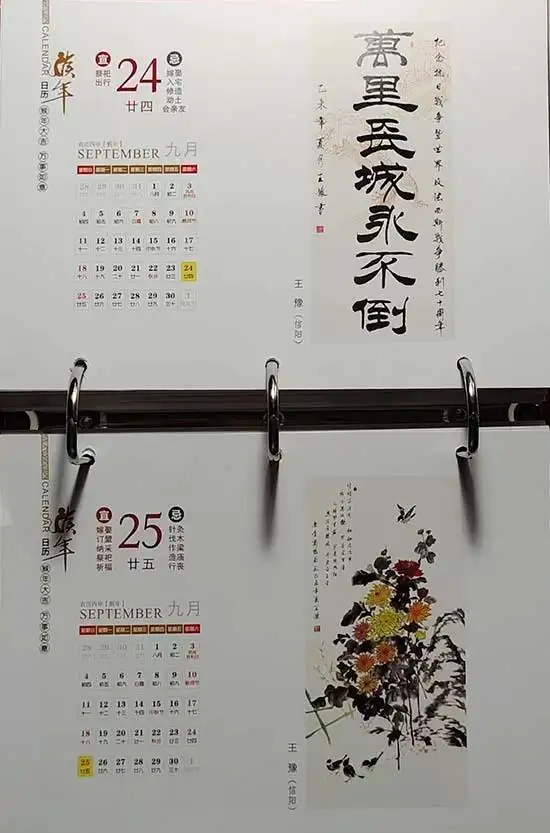 CALENDAR 日历 猴年大吉 万事如意
猴年
宜
祭祀
出行
24
廿四
忌
嫁娶
入宅
修造
动土
会亲友
SEPTEMBER 九月
星期日 星期一 星期二 星期三 星期四 星期五 星期六
28 29 30 31 1 2 3
八月 初二
4 5 6 7 8 9 10
初四 初五 初六 白露 初八 初九 教师节
11 12 13 14 15 16 17
十一 十二 十三 十四 中秋节 十六 十七
18 19 20 21 22 23 24
十八 十九 二十 廿一 秋分 廿三 廿四
25 26 27 28 29 30 1
廿五 廿六 廿七 廿八 廿九 三十
纪念抗日战争暨世界反法西斯战争胜利七十周年
萬里長城永不倒
乙未年夏月王豫书
王豫（信阳）
CALENDAR 日历 猴年大吉 万事如意
猴年
宜
嫁娶
订盟
纳采
祭祀
祈福
25
廿五
忌
针灸
伐木
作梁
造庙
行丧
SEPTEMBER 九月
星期日 星期一 星期二 星期三 星期四 星期五 星期六
28 29 30 31 1 2 3
八月 初二
4 5 6 7 8 9 10
初四 初五 初六 白露 初八 初九 教师节
11 12 13 14 15 16 17
十一 十二 十三 十四 中秋节 十六 十七
18 19 20 21 22 23 24
十八 十九 二十 廿一 秋分 廿三 廿四
25 26 27 28 29 30 1
廿五 廿六 廿七 廿八 廿九 三十
王豫（信阳）